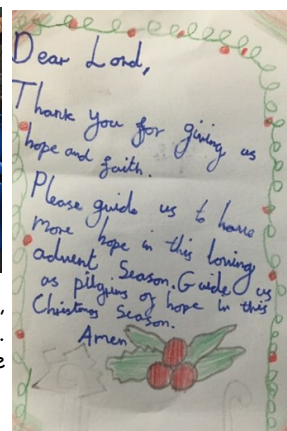 Dear Lord,
Thank you for giving us
hope and faith.
Please guide us to have
more hope in this loving
advent Season. Guide us
as pilgrims of hope in this
Christmas Season.
Amen